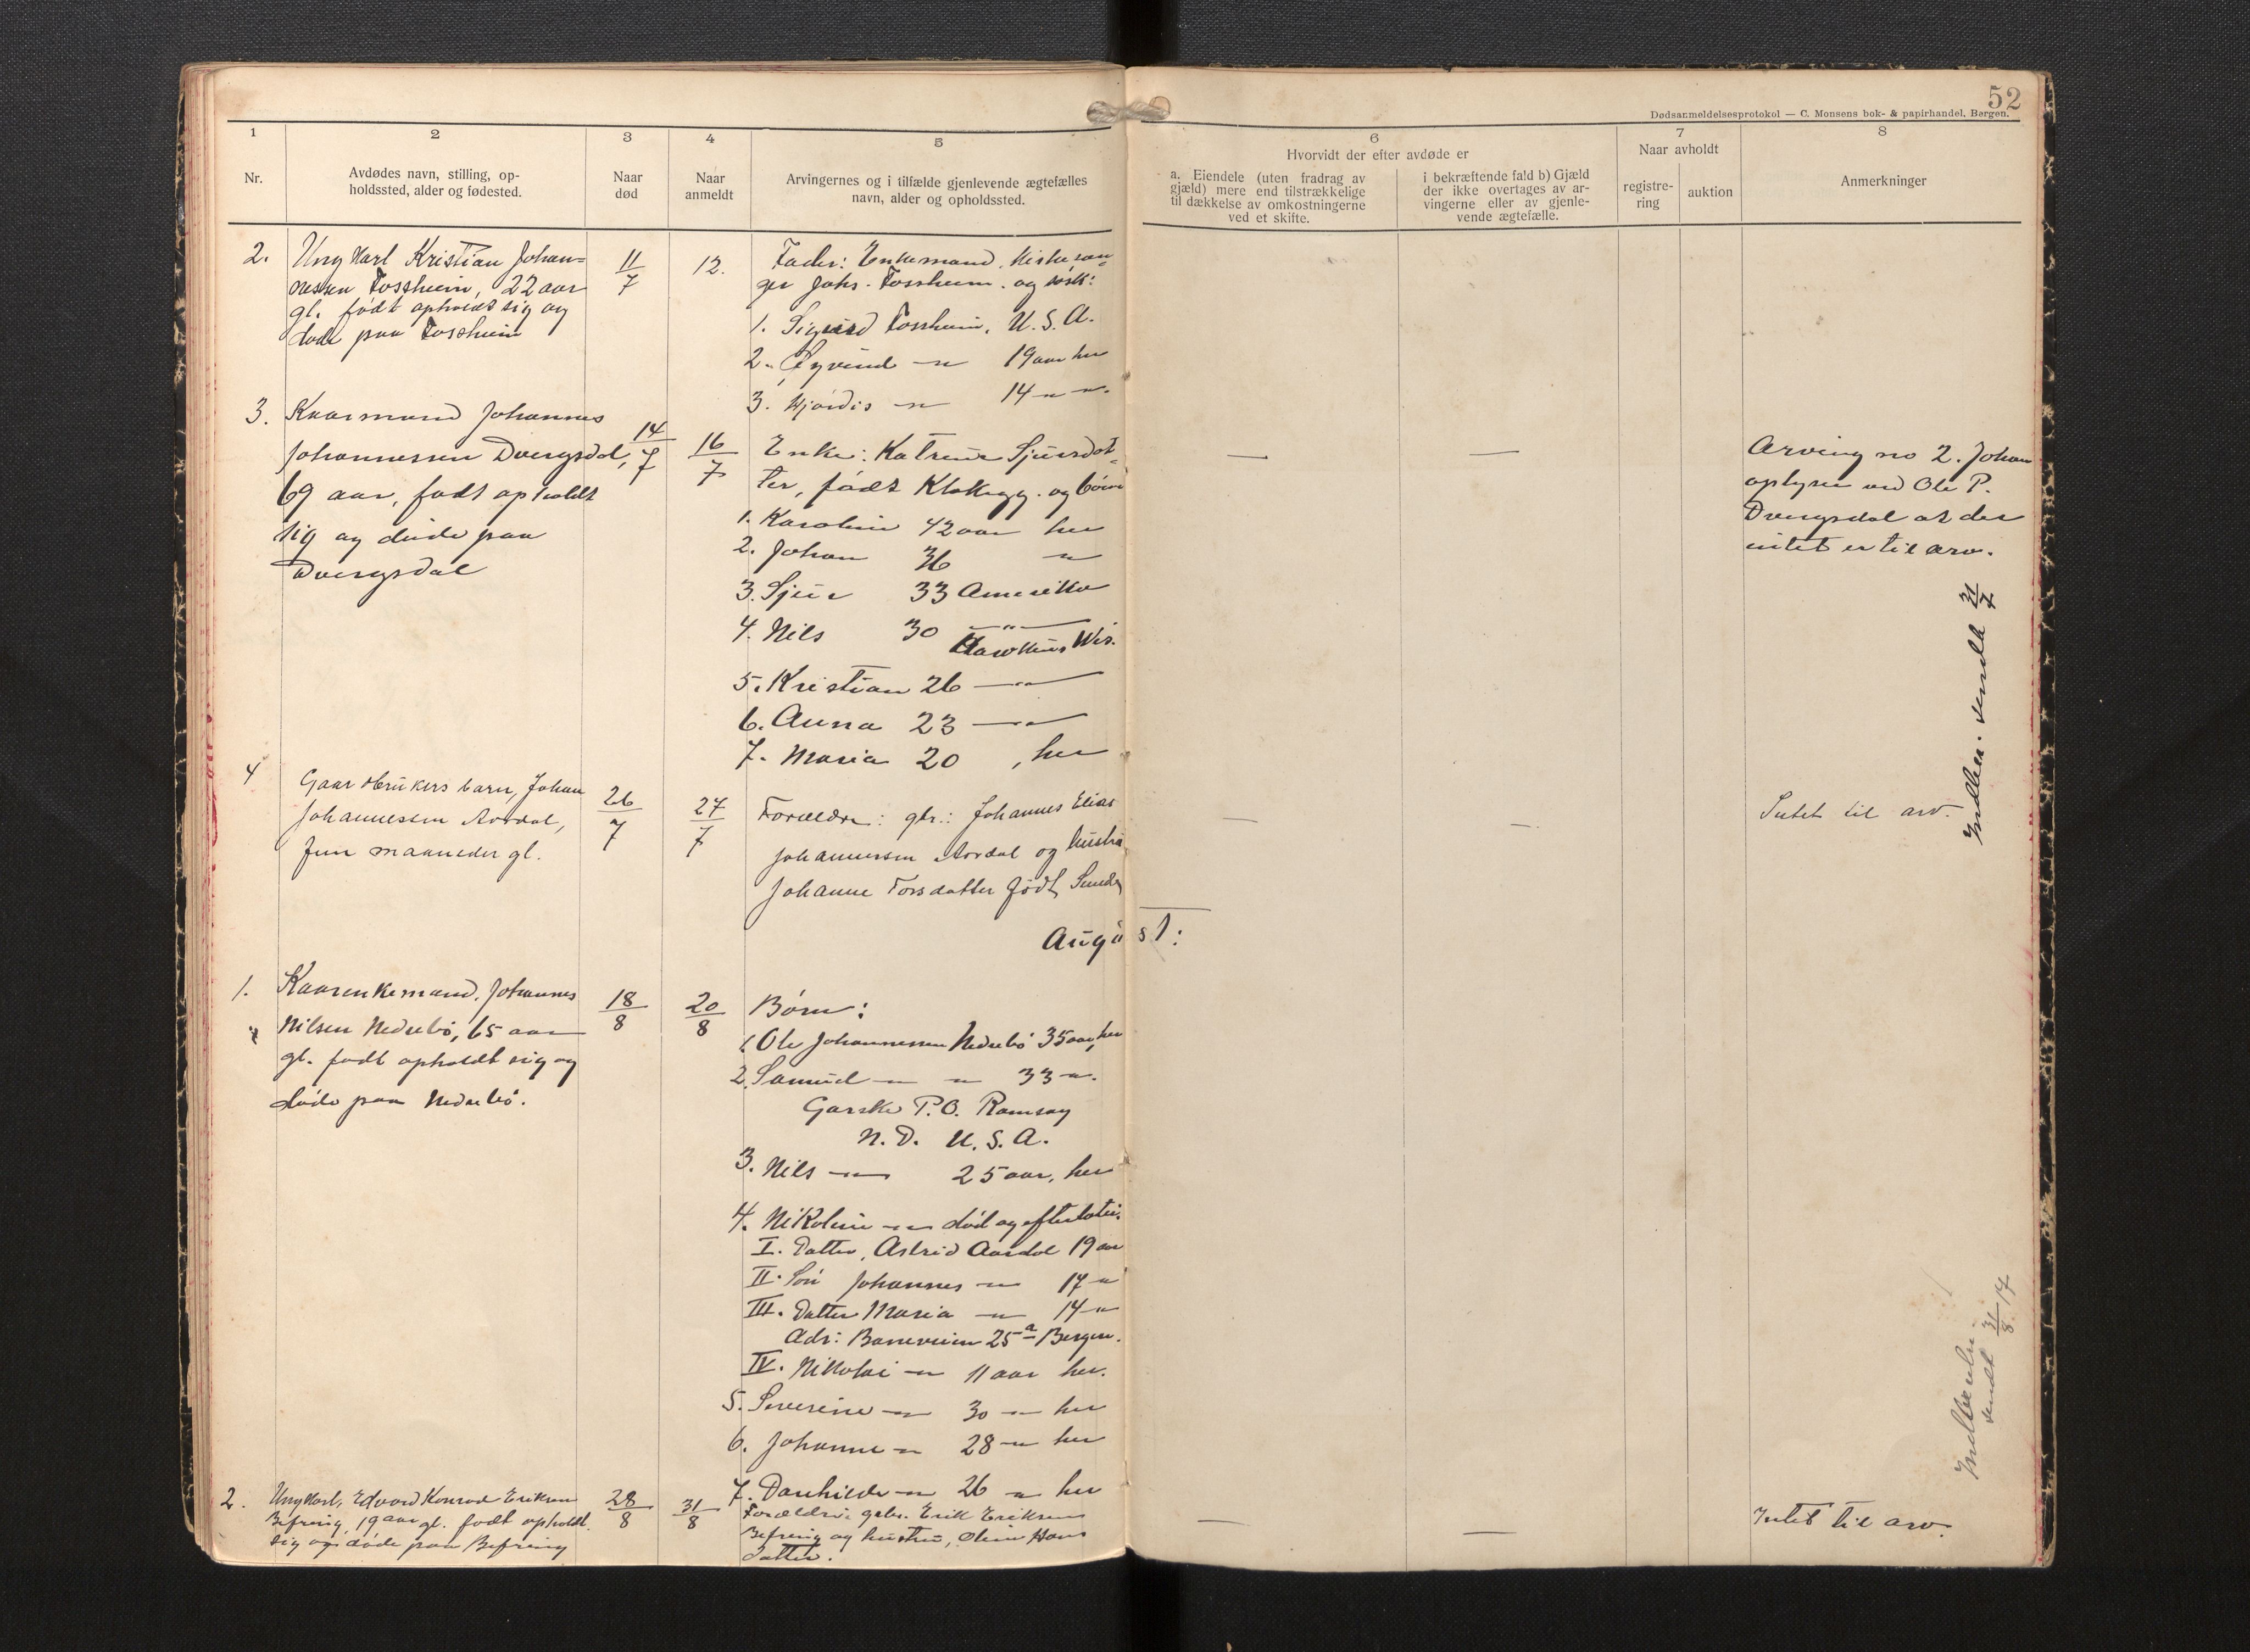 52
Dødsanmeldelsesprotokol — C. Monsens bok- & papirhandel, Bergen.
1
2
3
4
5
6
7
8
Nr.
Avdødes navn, stilling, op-
holdssted, alder og fødested.
Naar
død
Naar
anmeldt
Arvingernes og i tilfælde gjenlevende ægtefælles
navn, alder og opholdssted.
Hvorvidt der efter avdøde er
a. Eiendele (uten fradrag av
gjæld) mere end tilstrækkelige
til dækkelse av omkostningerne
ved et skifte.
i bekræftende fald b) Gjæld
der ikke overtages av ar-
vingerne eller av gjenle-
vende ægtefælle.
Naar avholdt
registre-
ring
auktion
Anmerkninger
2.
Ungkarl Kristian Johan=
nessen Fossheim, 22 aar
gl. født opholdt sig og
døde paa Fossheim
11/7
12.
Fader: Enkemand, Kirkesan=
ger Johs. Fossheim. og søsk:
1. Sigurd Fossheim. U.S.A.
2. Øyvind —"— 19 aar her
3. Hjørdis —"— 14 —"—
3.
Kaarmand Johannes
Johannessen Dvergsdal,
69 aar, født opholdt
sig og døde paa
Dvergsdal
14/7
16/7
Enke: Katrine Sjursdot=
ter, født Klakegg. og børn
1. Karoline 42 aar her
2. Johan 36 —"—
3. Sjur 33 Amerika
4. Nils 30 —"—
Hawkins Wis.
5. Kristian 26 —"—
6. Anna 23 —"—
7. Maria 20, her
—
—
Arving no 2. Johan
oplyser ved Ole P.
Dvergsdal at der
intet er til arv.
Indber. sendt 31/7
4
Gaardbrukers barn, Johan
Johannessen Aardal,
fem maaneder gl.
26/7
27/7
Forældre: gbr.: Johannes Elias
Johannessen Aardal og hustru
Johanne Torsdatter født Sunde
—
—
Intet til arv.
August:
1.
Kaarenkemand, Johannes
Nilsen Nedrebø, 65 aar
gl. født opholdt sig og
døde paa Nedrebø.
18/8
20/8
Børn:
1. Ole Johannessen Nedrebø 35 aar, her
2. Samuel —"— —"— 33 —"—
Garske P.O. Ramsay
N.D. U.S.A.
3. Nils —"— 25 aar, her
4. Nikoline —"— død og efterlater:
I. Datter, Astrid Aardal 19 aar
II. Søn Johannes —"— 17 —"—
III. Datter Maria —"— 14 —"—
Adr: Baneveien 25a Bergen.
IV. Nikolai —"— 11 aar her.
5. Severine —"— 30 —"— her
6. Johanne —"— 28 —"— her
7. Danhilde —"— 26 —"— her
Indberetn.
sendt 31/8 17
2.
Ungkarl, Edvard Konrad Eriksen
Befring, 19 aar gl. født opholdt
sig og døde paa Befring
28/8
31/8
Forældre: gbr. Erik Eriksen
Befring og hustru, Oline Hans
datter.
—
—
Intet til arv.